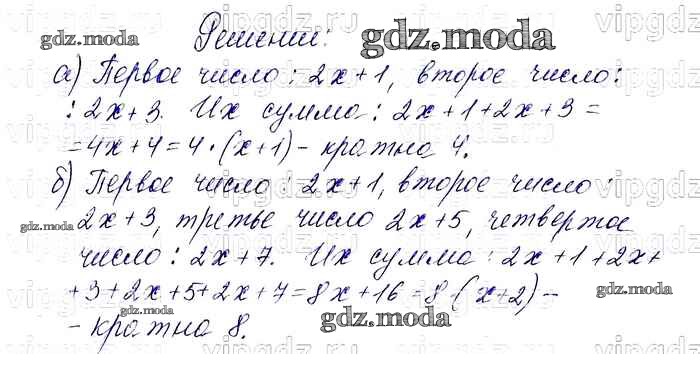 Решении:
gdz.moda
gdz.moda
а) Первое число: 2x+1, второе число:
: 2x+3. Их сумма: 2x+1+2x+3=
=4x+4=4·(x+1)-кратна 4.
б) Первое число: 2x+1, второе число:
2x+3, третье число 2x+5, четвертое
gdz.moda
число: 2x+7. Их сумма: 2x+1+2x+
+3+2x+5+2x+7=8x+16=8(x+2)-
gdz.moda
gdz.moda
gdz.moda
-кратна 8.